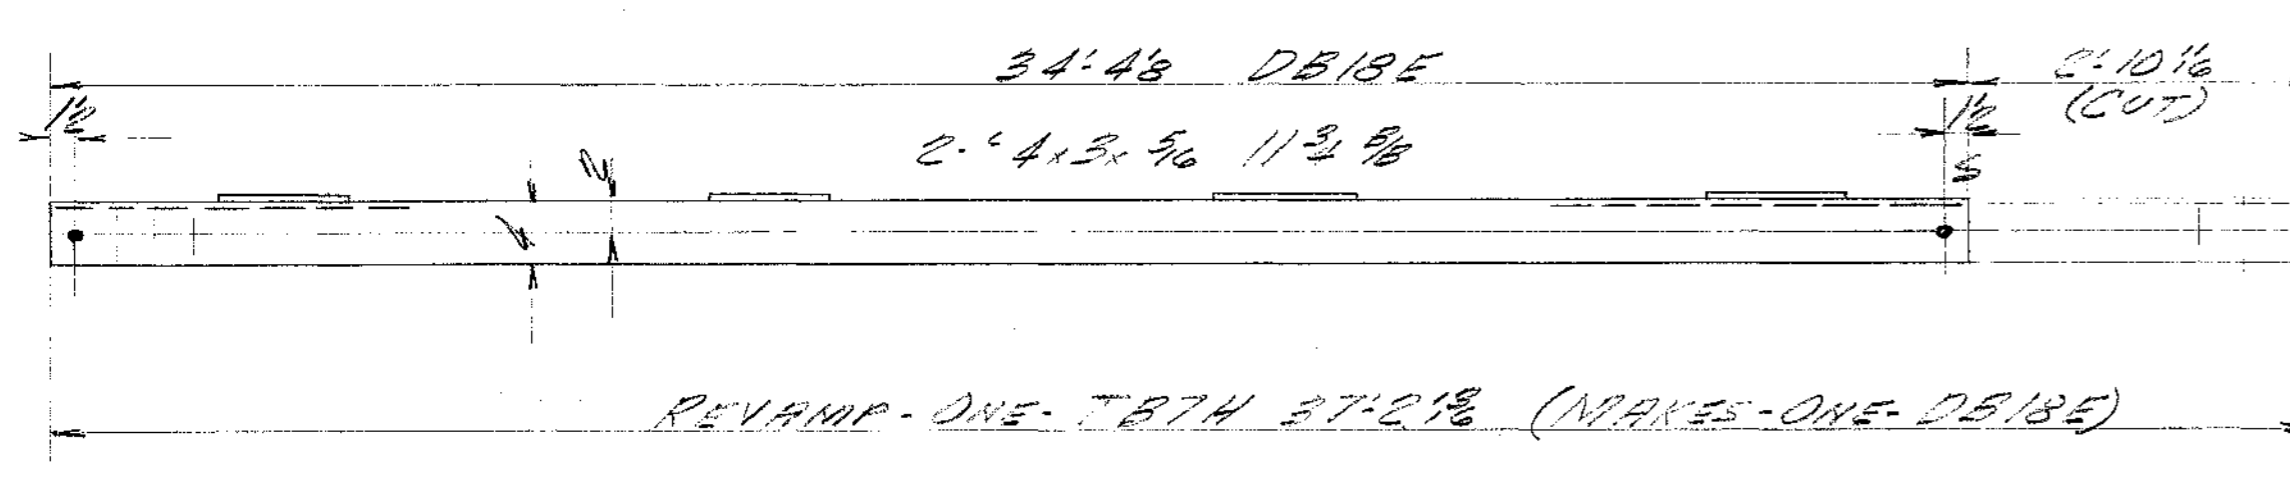 34'-4 1/8 DB18E
2'-10 1/16
(CUT)
1 1/2
1 1/2
2-∠ 4x3x 5/16 11 3/4 B/B
2
S
4
REVAMP-ONE- TB7H 37'-2 3/16 (MAKES-ONE-DB18E)